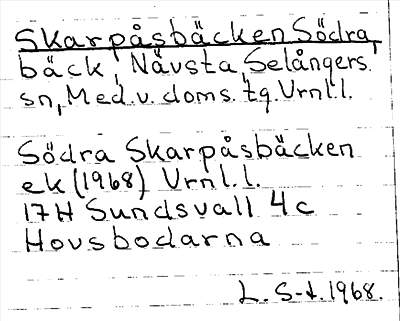 Skarpåsbäcken, Södra,
bäck, Nävsta, Selångers
sn, Med.v. doms. tg. Vrnl.l.
Södra Skarpåsbäcken
ek (1968) Vrnl.l.
17H Sundsvall 4c
Hovsbodarna
L. S-t. 1968.